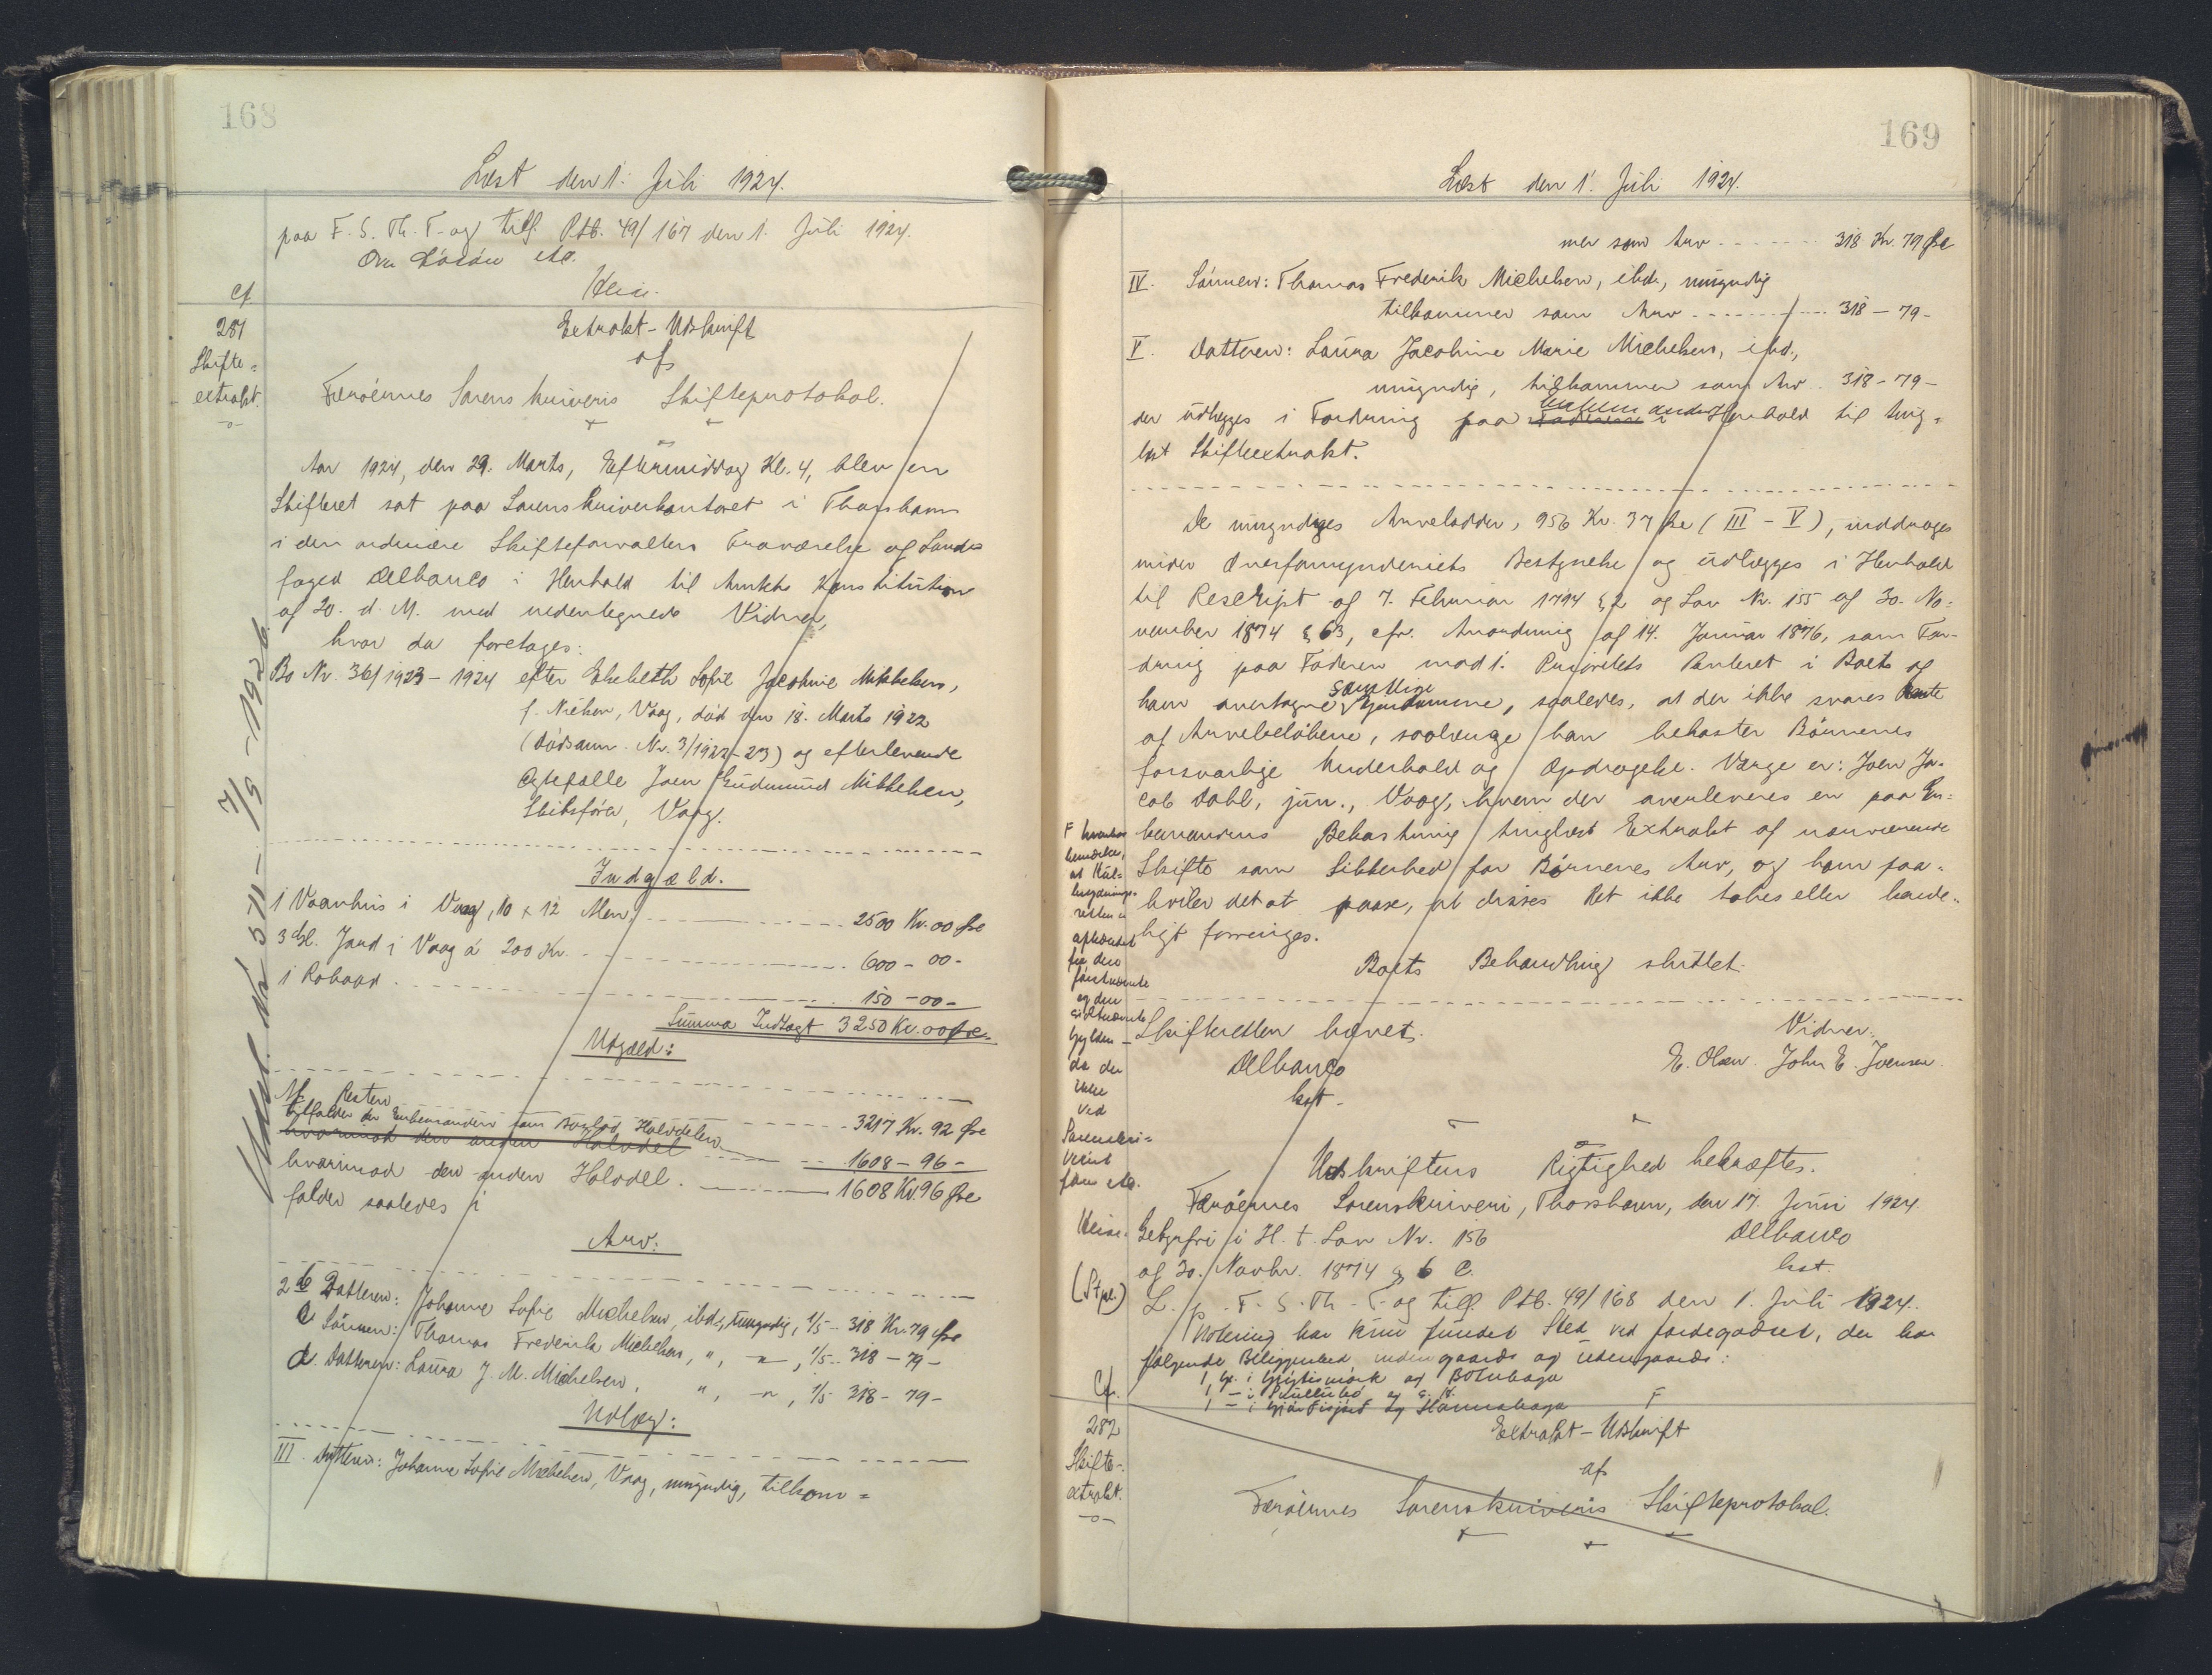 168
Læst den 1. Juli 1924.
paa F. S. Th. T. og till. Ptb. 49/167 den 1. Juli 1924.
Heise.
Cf.
281
Skifte=
extrakt.
Extrakt-Udskrift
af
Færöernes Sorenskriveris Skifteprotokol.
Aar 1924, den 29. Marts, Eftermiddag Kl. 4, blev en
Skifteret sat paa Sorenskriverkontoret i Thorshavn
i den ordinære Skifteforvalters Fraværelse af Land=
foged Delbanco i Henhold til Amtets Konstitution
af 20. d. M. med undertegnede Vidner,
hvor da foretoges:
Bo Nr. 36/1923-1924 efter Elsebeth Sofie Jacobine Mikkelsen,
f. Nielsen, Vaag, död den 18. Marts 1922
(Dödsanm. Nr. 3/1922-23) og efterlevende
Ægtefælle Joen Gudmund Mikkelsen,
Skibsförer, Vaag.
Udsl. Nr 511 - 7/9 - 1926.
Indgæld.
1 Vaanhus i Vaag, 10 x 12 Alen, 2500 Kr. 00 Øre
3 Gl. Jord i Vaag á 200 Kr. 600 - 00 -
1 Robaad 150 - 00 -
Summa Indtægt 3250 Kr. 00 Øre.
Udgæld:
Af Resten 3217 Kr. 92 Øre
tilfalder der Enkemanden som Boslod Halvdelen
hvorimod den anden Halvdel 1608 - 96 -
hvorimod den anden Halvdel 1608 Kr. 96 Øre
falder saaledes i
Arv:
2 b Datteren: Johanne Sofie Michelsen, ibd., umyndig, 1/5 - 318 Kr. 79 Øre
c Sönnen: Thomas Frederik Michelsen, ", -"-, 1/5 - 318 - 79 -
d. Datteren: Laura J. M. Michelsen, ", -"-, 1/5 318 - 79 -
Udlæg:
III. Datteren: Johanne Sofie Michelsen, Vaag, umyndig, tilkom=
169
Læst den 1. Juli 1924.
mer som Arv 318 Kr. 79 Øre
IV. Sönnen: Thomas Frederik Michelsen, ibd., umyndig
tilkommer som Arv 318 - 79 -
V. Datteren: Laura Jacobine Marie Michelsen, ibd.,
umyndig, tilkommer som Arv 318 - 79 -
der udlægges i Fordring paa Faderen i Henhold til ting=
læst Skifteextrakt.
De umyndiges Arvelodder, 956 Kr. 37 Øre (III - V), inddrages
under Overformynderiets Bestyrelse og udlægges i Henhold
til Rescript af 7. Februar 1794 § 2 og Lov Nr. 155 af 30. No=
vember 1874 § 63, cfr. Anordning af 14. Januar 1876, som For-
dring paa Faderen mod 1. Prioritets Panteret i Boets af
ham overtagne samtlige Ejendomme, saaledes, at der ikke svares Rente
af Arvebelöbene, saalænge han bekoster Börnenes
forsvarlige Underhold og Opdragelse. Værge er: Joen Ja-
cob Dahl, jun., Vaag, hvem der overleveres en paa En=
kemandens Bekostning tinglæst Extrakt af nærværende
Skifte som Sikkerhed for Börnenes Arv, og ham paa=
hviler det at paase, at disses Ret ikke tabes eller bevis=
ligt forringes.
Boets Behandling sluttet.
Skifteretten hævet.
Delbanco
kst.
Vidner:
E. Olsen. John E. Joensen.
Udskriftens Rigtighed bekræftes.
Færöernes Sorenskriveri, Thorshavn, den 17. Juni 1924
Gebyrfri i H. t. Lov Nr. 156
af 30. Novbr. 1874 § 6 C.
Delbanco
kst.
(Stpl.)
L. p. F. S. Th. T. og till. Ptb. 49/168 den 1. Juli 1924.
Notering har kun fundet Sted ved Jordegodset, der har
følgende Beliggenhed indengaards og udengaards:
Heise.
Cf.
282
Skifte-
extrakt.
Extrakt-Udskrift
af
Færöernes Sorenskriveris Skifteprotokol.